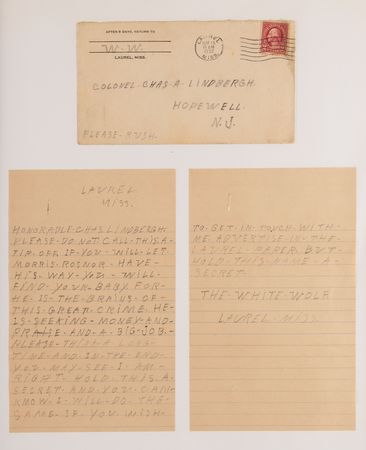 AFTER 5 DAYS, RETURN TO
W. W.
LAUREL, MISS.
LAUREL
MISS.
1932
COLONEL CHAS. A. LINDBERGH.
HOPEWELL.
N. J.
PLEASE-RUSH.
LAUREL
MISS.
HONORABLE CHAS. LINDBERGH.
PLEASE-DO-NOT-CALL-THIS-A-
TIP OFF IF YOU-WILL-LET
MORRIS-ROSNOR-HAVE-
HIS-WAY-YOU-WILL-
FIND YOUR-BABY FOR-
HE IS THE-BRAINS OF-
THIS-GREAT-CRIME HE-
IS-SEEKING-MONEY-AND-
PRAISE AND-A-BIG-JOB-
PLEASE-THINK-A LONG-
TIME-AND-IN THE-END-
YOU MAY-SEE-I AM-
RIGHT-HOLD THIS-A-
SECRET-AND YOU-CAN-
KNOW-I-WILL-DO THE-
SAME-IF YOU WISH-
TO GET-IN TOUCH-WITH-
ME ADVERTISE IN-THE-
LAUREL-PAPER-BUT-
HOLD THIS-NAME-A-
SECRET-
THE-WHITE-WOLF
LAUREL-MISS